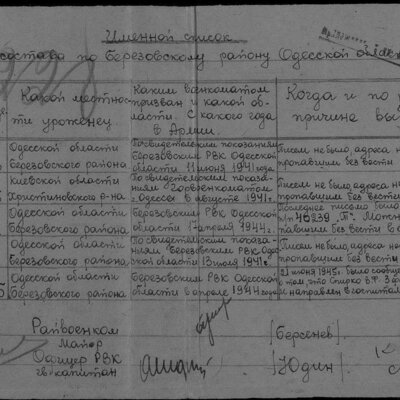 Именной список
состава по Березовскому району Одесской области
Какой местнос-
ти уроженец
Каким военкоматом
призван и какой об-
ласти. С какого года
в Армии.
Когда и по
причине вы
Одесской области
Березовского района
По свидетельским показаниям
Березовским РВК Одесской
области 11 июня 1941 года
Писем не было, адреса не
пропавшим без вести
Киевской области
Христиновского р-на
По свидетельским показа-
ниям Горвоенкоматом
г. Одессы в августе 1941 г.
Писем не было, адреса не
пропавшим без вести
Одесской области
Березовского района
Березовским РВК Одесской
области 17 апреля 1944 г.
Последнее письмо
п/п 46239 "Т" Можно
пропавшим без вести в
Одесской области
Березовского района
По свидетельским показа-
ниям Березовским РВК Одес-
ской области 13 июля 1941 г.
Писем не было, адреса не
пропавшим без вести
Одесской области
Березовского района
Березовским РВК Одесской
области в апреле 1944 года
21 июня 1945 г. было сообще
о том, что Спирко В.Ф. 3
направлен в госпиталь
Райвоенком
Майор
/Берсенев/
Офицер РВК
гв. капитан
/Юдин/